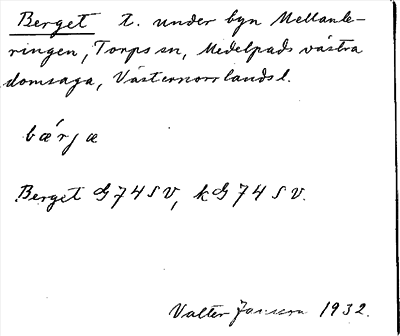 Berget t. under byn Mellanle-
ringen, Torps sn, Medelpads västra
domsaga, Västernorrlands l.
bærjæ
Berget G74SV, kG74SV.
Valter Jansson 1932.